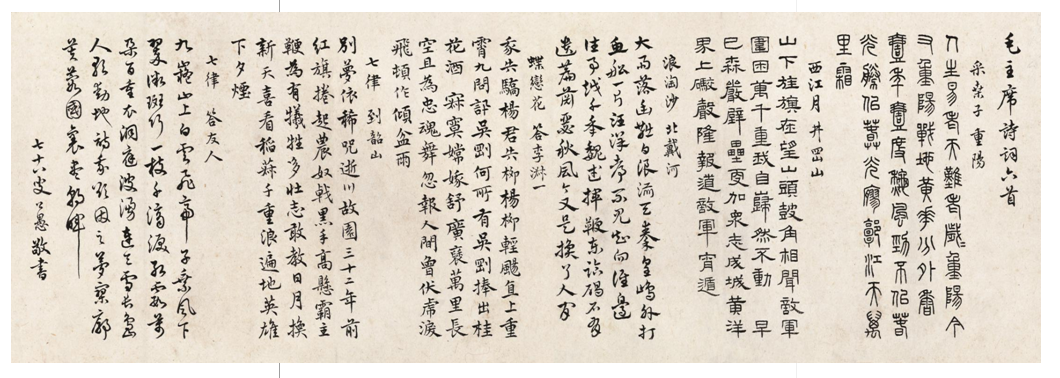 毛主席詩詞六首
采桑子 重陽
人生易老天難老歲重陽今
又重陽戰地黃花分外香
壹年壹度秋風勁不佀春
光勝佀春光寥廓江天萬
里霜
西江月 井岡山
山下旌旗在望山頭鼓角相聞敵軍
圍困萬千重我自巋然不動 早
已森嚴壁壘更加衆志成城黃洋
界上礮聲隆報道敵軍宵遁
浪淘沙 北戴河
大雨落幽燕白浪滔天秦皇島外打
魚船一片汪洋都不見知向誰邊
往事越千年魏武揮鞭東臨碣石有
遺篇蕭瑟秋風今又是換了人間
蝶戀花 答李淑一
我失驕楊君失柳楊柳輕颺直上重
霄九問訊吳剛何所有吳剛捧出桂
花酒 寂寞嫦娥舒廣袖萬里長
空且為忠魂舞忽報人間曾伏虎淚
飛頓作傾盆雨
七律 到韶山
別夢依稀咒逝川故園三十二年前
紅旗捲起農奴戟黑手高懸霸主
鞭為有犧牲多壯志敢教日月換
新天喜看稻菽千重浪遍地英雄
下夕煙
七律 答友人
九嶷山上白雲飛帝子乘風下
翠微斑竹一枝千滴淚紅霞萬
朵百重衣洞庭波湧連天雪長島
人歌動地詩我欲因之夢寥廓
芙蓉國裏盡朝暉
七十六叟公愚敬書